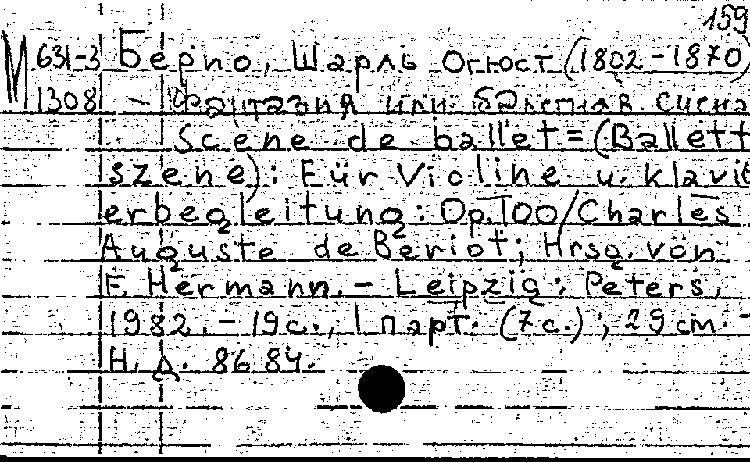 159
М 631-3 Берио, Шарль Огюст (1802-1870)
1308 - Фантазия или балетная сцена
Scene de ballet = (Ballett
szene): Für Violine u. klavi
erbegleitung: Op. 100/Charles
Auguste de Beriot; Hrsg. von
F. Hermann. - Leipzig: Peters,
1982. - 19 с., 1 парт. (7 с.); 29 cm. -
Н. Д. 8684.